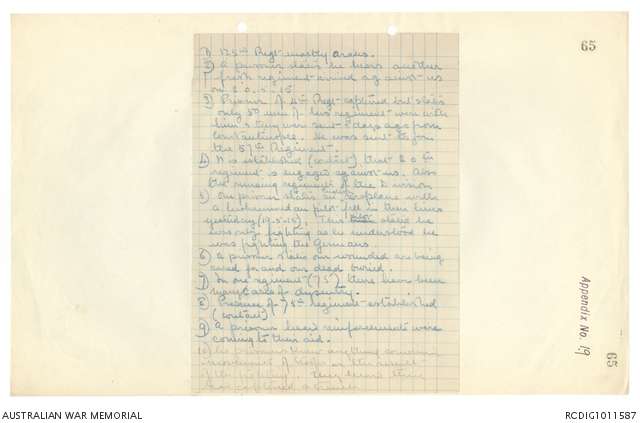 65
1) 125th Regt mostly arabs.
2) A prisoner states he hears another
fresh regiment arrived against us
on 20.5.15
3) Prisoner of 4th Regt captured but states
only 50 men of his regiment were with
him & they were sent days ago from
Constantinople. He was sent to join
the 57th Regiment.
4) It is established (contact) that
regiment is engaged against us. Also
the remaining regiments of the Division
5) One prisoner states an aeroplane with
a Mohammedan pilot fell in their lines
yesterday (19.5.15). This pilot stated he
was only fighting as he understood he
was fighting the Germans.
6) A prisoner states our wounded are being
cared for and our dead buried.
7) In one regiment (75) there have been
many cases of dysentry.
8) Presence of 78th regiment established
(contact)
9) A prisoner heard reinforcements were
coming to their aid.
10) No prisoners knew anything
movement of troops or the result
of the fighting. They heard they
have captured a trench
Appendix No. 19
65
AUSTRALIAN WAR MEMORIAL
RCDIG1011587